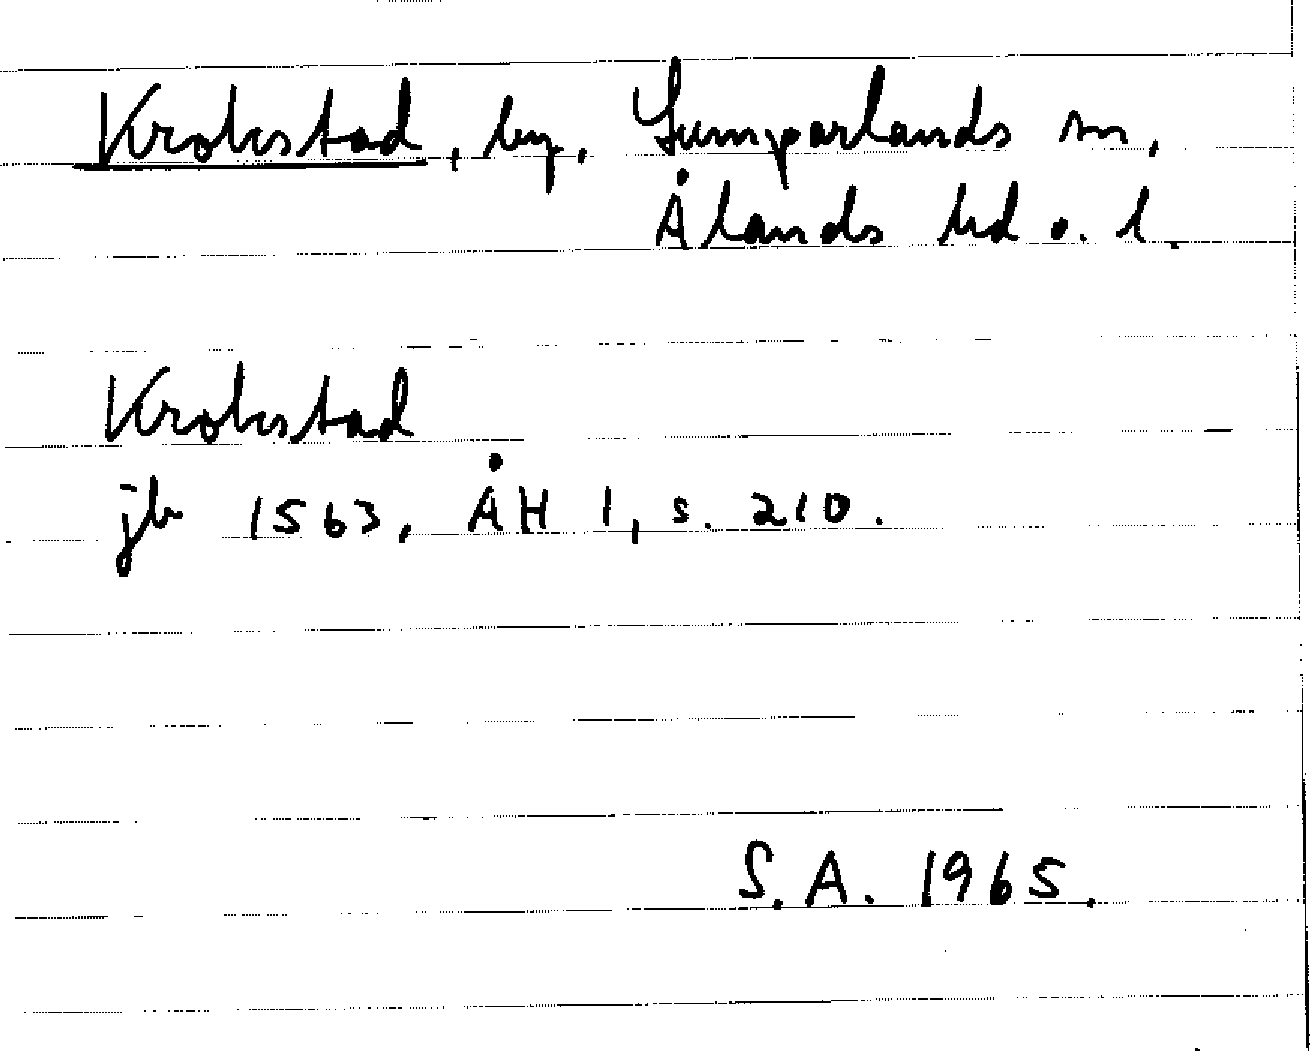 Krokstad, by, Lumparlands sn,
Ålands hd o. l.
Krokstad
jb 1563, ÅH 1, s. 210.
S.A. 1965.